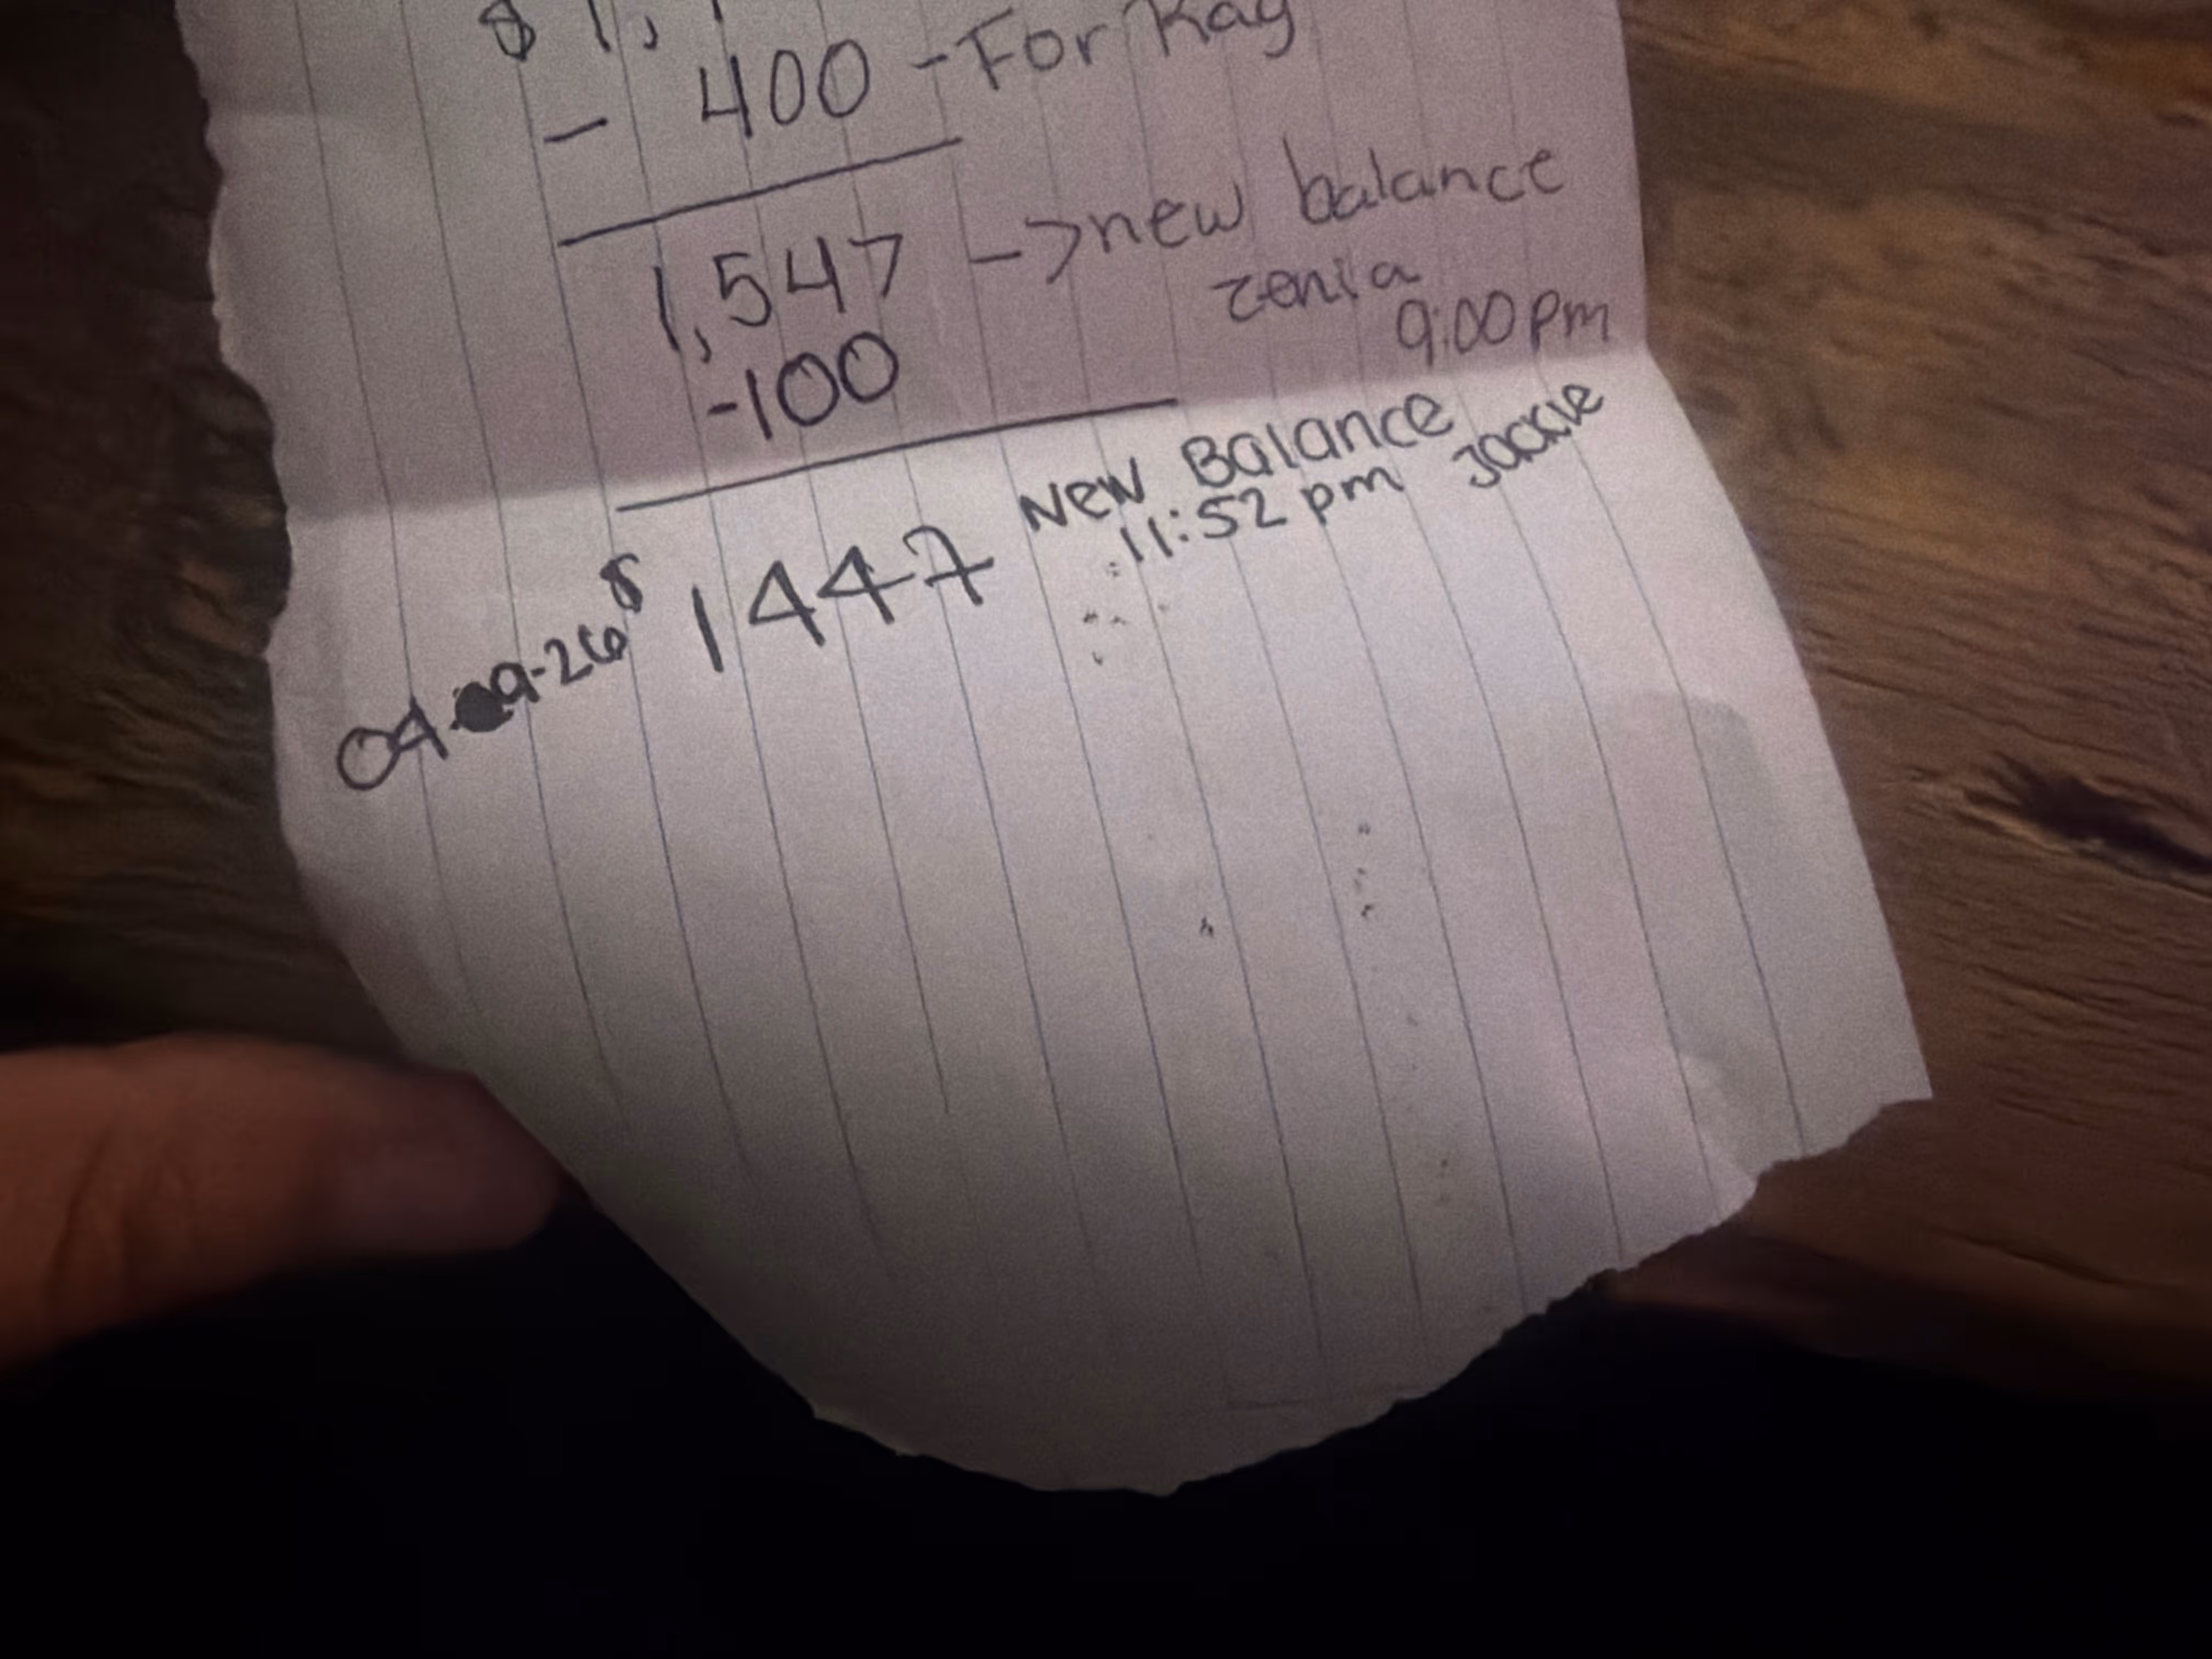 $ 1,
- 400 - For Kay
1,547 -> new balance
zenia
9:00 pm
-100
New Balance
$ 1447 11:52 pm Jackie
04- 9-26